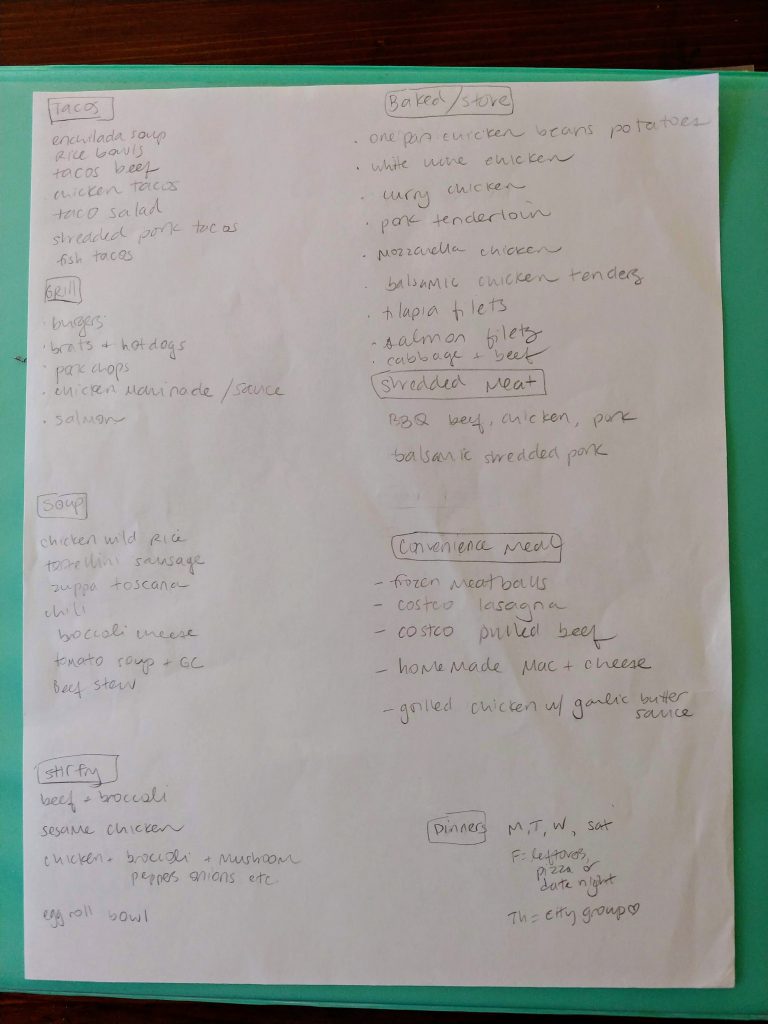 Tacos
enchilada soup
Rice bowls
tacos beef
chicken tacos
taco salad
shredded pork tacos
fish tacos
Grill
· burgers
· brats + hotdogs
· pork chops
· chicken marinade / sauce
· salmon
Soup
chicken wild rice
tortellini sausage
zuppa toscana
chili
broccoli cheese
tomato soup + GC
Beef stew
stir fry
beef + broccoli
sesame chicken
chicken + broccoli + mushroom
peppers onions etc.
egg roll bowl
Baked/stove
· one pan chicken beans potatoes
· white wine chicken
· curry chicken
· pork tenderloin
· mozzarella chicken
· balsamic chicken tenders
· tilapia filets
· salmon filets
· cabbage + beef
Shredded Meat
BBQ beef, chicken, pork
balsamic shredded pork
Convenience Meal
- frozen meatballs
- costco lasagna
- costco pulled beef
- homemade mac + cheese
- grilled chicken w/ garlic butter
sauce
Dinners M, T, W, Sat
F = leftovers,
pizza or
date night
Th = city group ♡